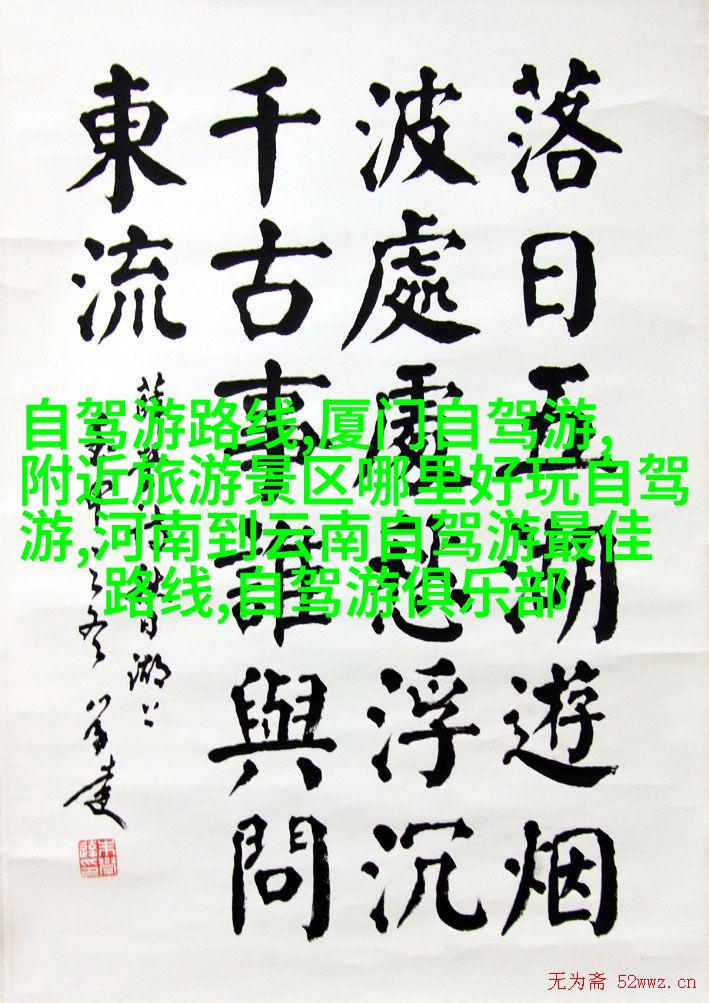 落日五湖遊烟
波處處愁浮沉
千古事誰與問
東流
自驾游路线,厦门自驾游,
附近旅游景区哪里好玩自驾
游,河南到云南自驾游最佳
路线,自驾游俱乐部
无为斋 52wwz.cn